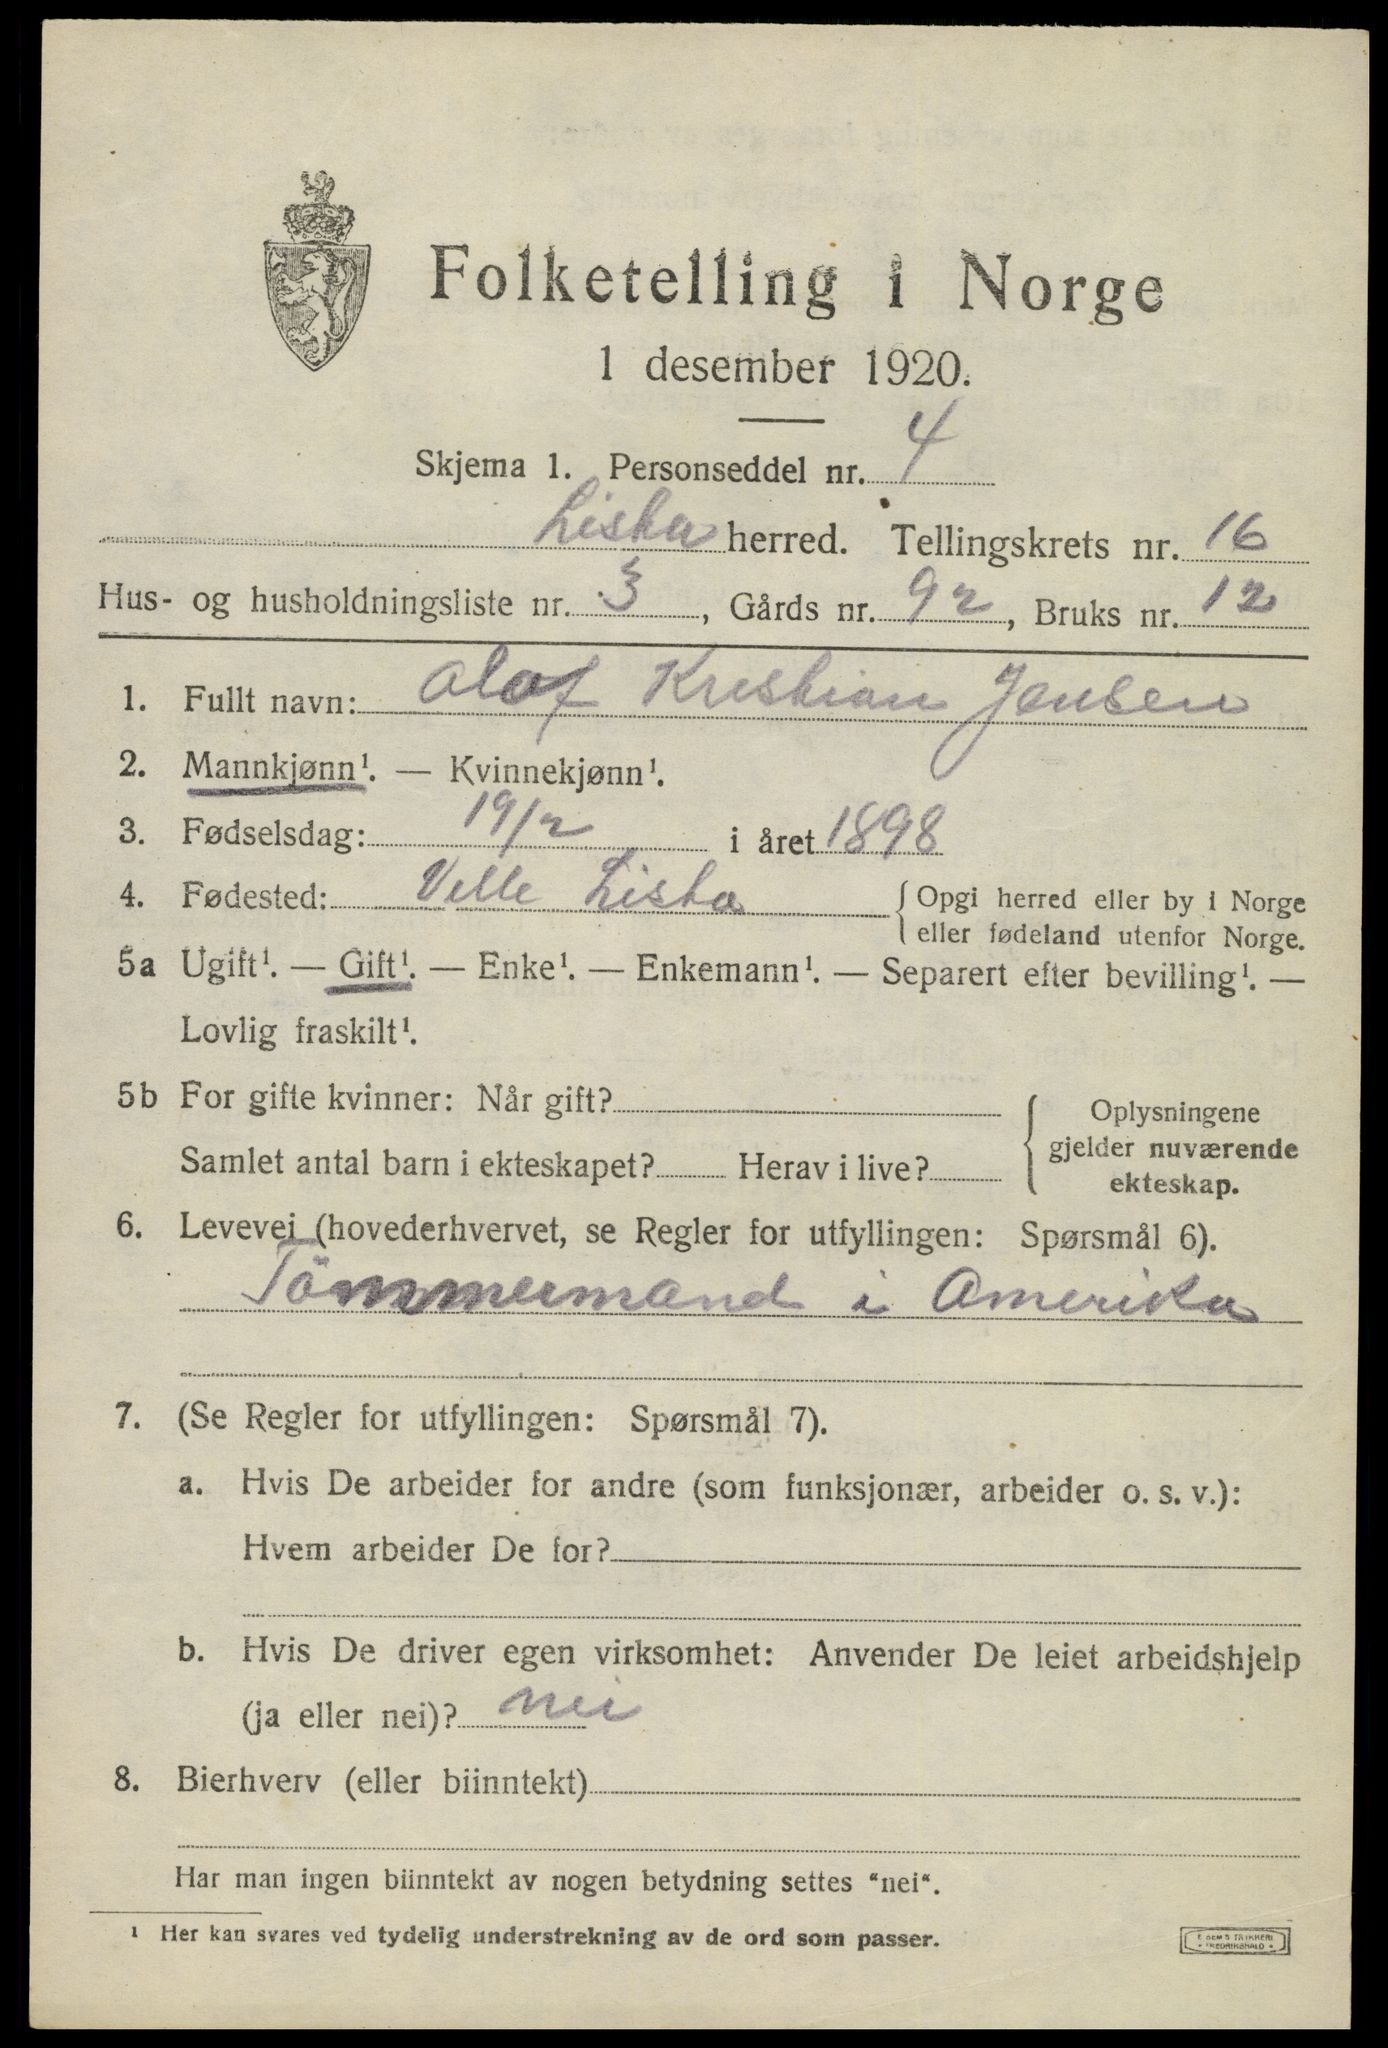 Folketelling i Norge
1 desember 1920.
Skjema 1. Personseddel nr. 4
Lista herred. Tellingskrets nr. 16
Hus- og husholdningsliste nr. 3, Gårds nr. 92, Bruks nr. 12
1. Fullt navn: Olaf Kristian Jensen
2. Mannkjønn¹. — Kvinnekjønn¹.
3. Fødselsdag: 19/2 i året 1898
4. Fødested: Velle Lista { Opgi herred eller by i Norge
eller fødeland utenfor Norge.
5a Ugift¹. — Gift¹. — Enke¹. — Enkemann¹. — Separert efter bevilling¹. —
Lovlig fraskilt¹.
5b For gifte kvinner: Når gift? { Oplysningene
gjelder nuværende
Samlet antal barn i ekteskapet? Herav i live?
ekteskap.
6. Levevei (hovederhvervet, se Regler for utfyllingen: Spørsmål 6).
Tömmermand i Amerika
7. (Se Regler for utfyllingen: Spørsmål 7).
a. Hvis De arbeider for andre (som funksjonær, arbeider o. s. v.):
Hvem arbeider De for?
b. Hvis De driver egen virksomhet: Anvender De leiet arbeidshjelp
(ja eller nei)? nei
8. Bierhverv (eller biinntekt)
Har man ingen biinntekt av nogen betydning settes "nei".
¹ Her kan svares ved tydelig understrekning av de ord som passer.
TRYKKERI
FREDRIKSHALD